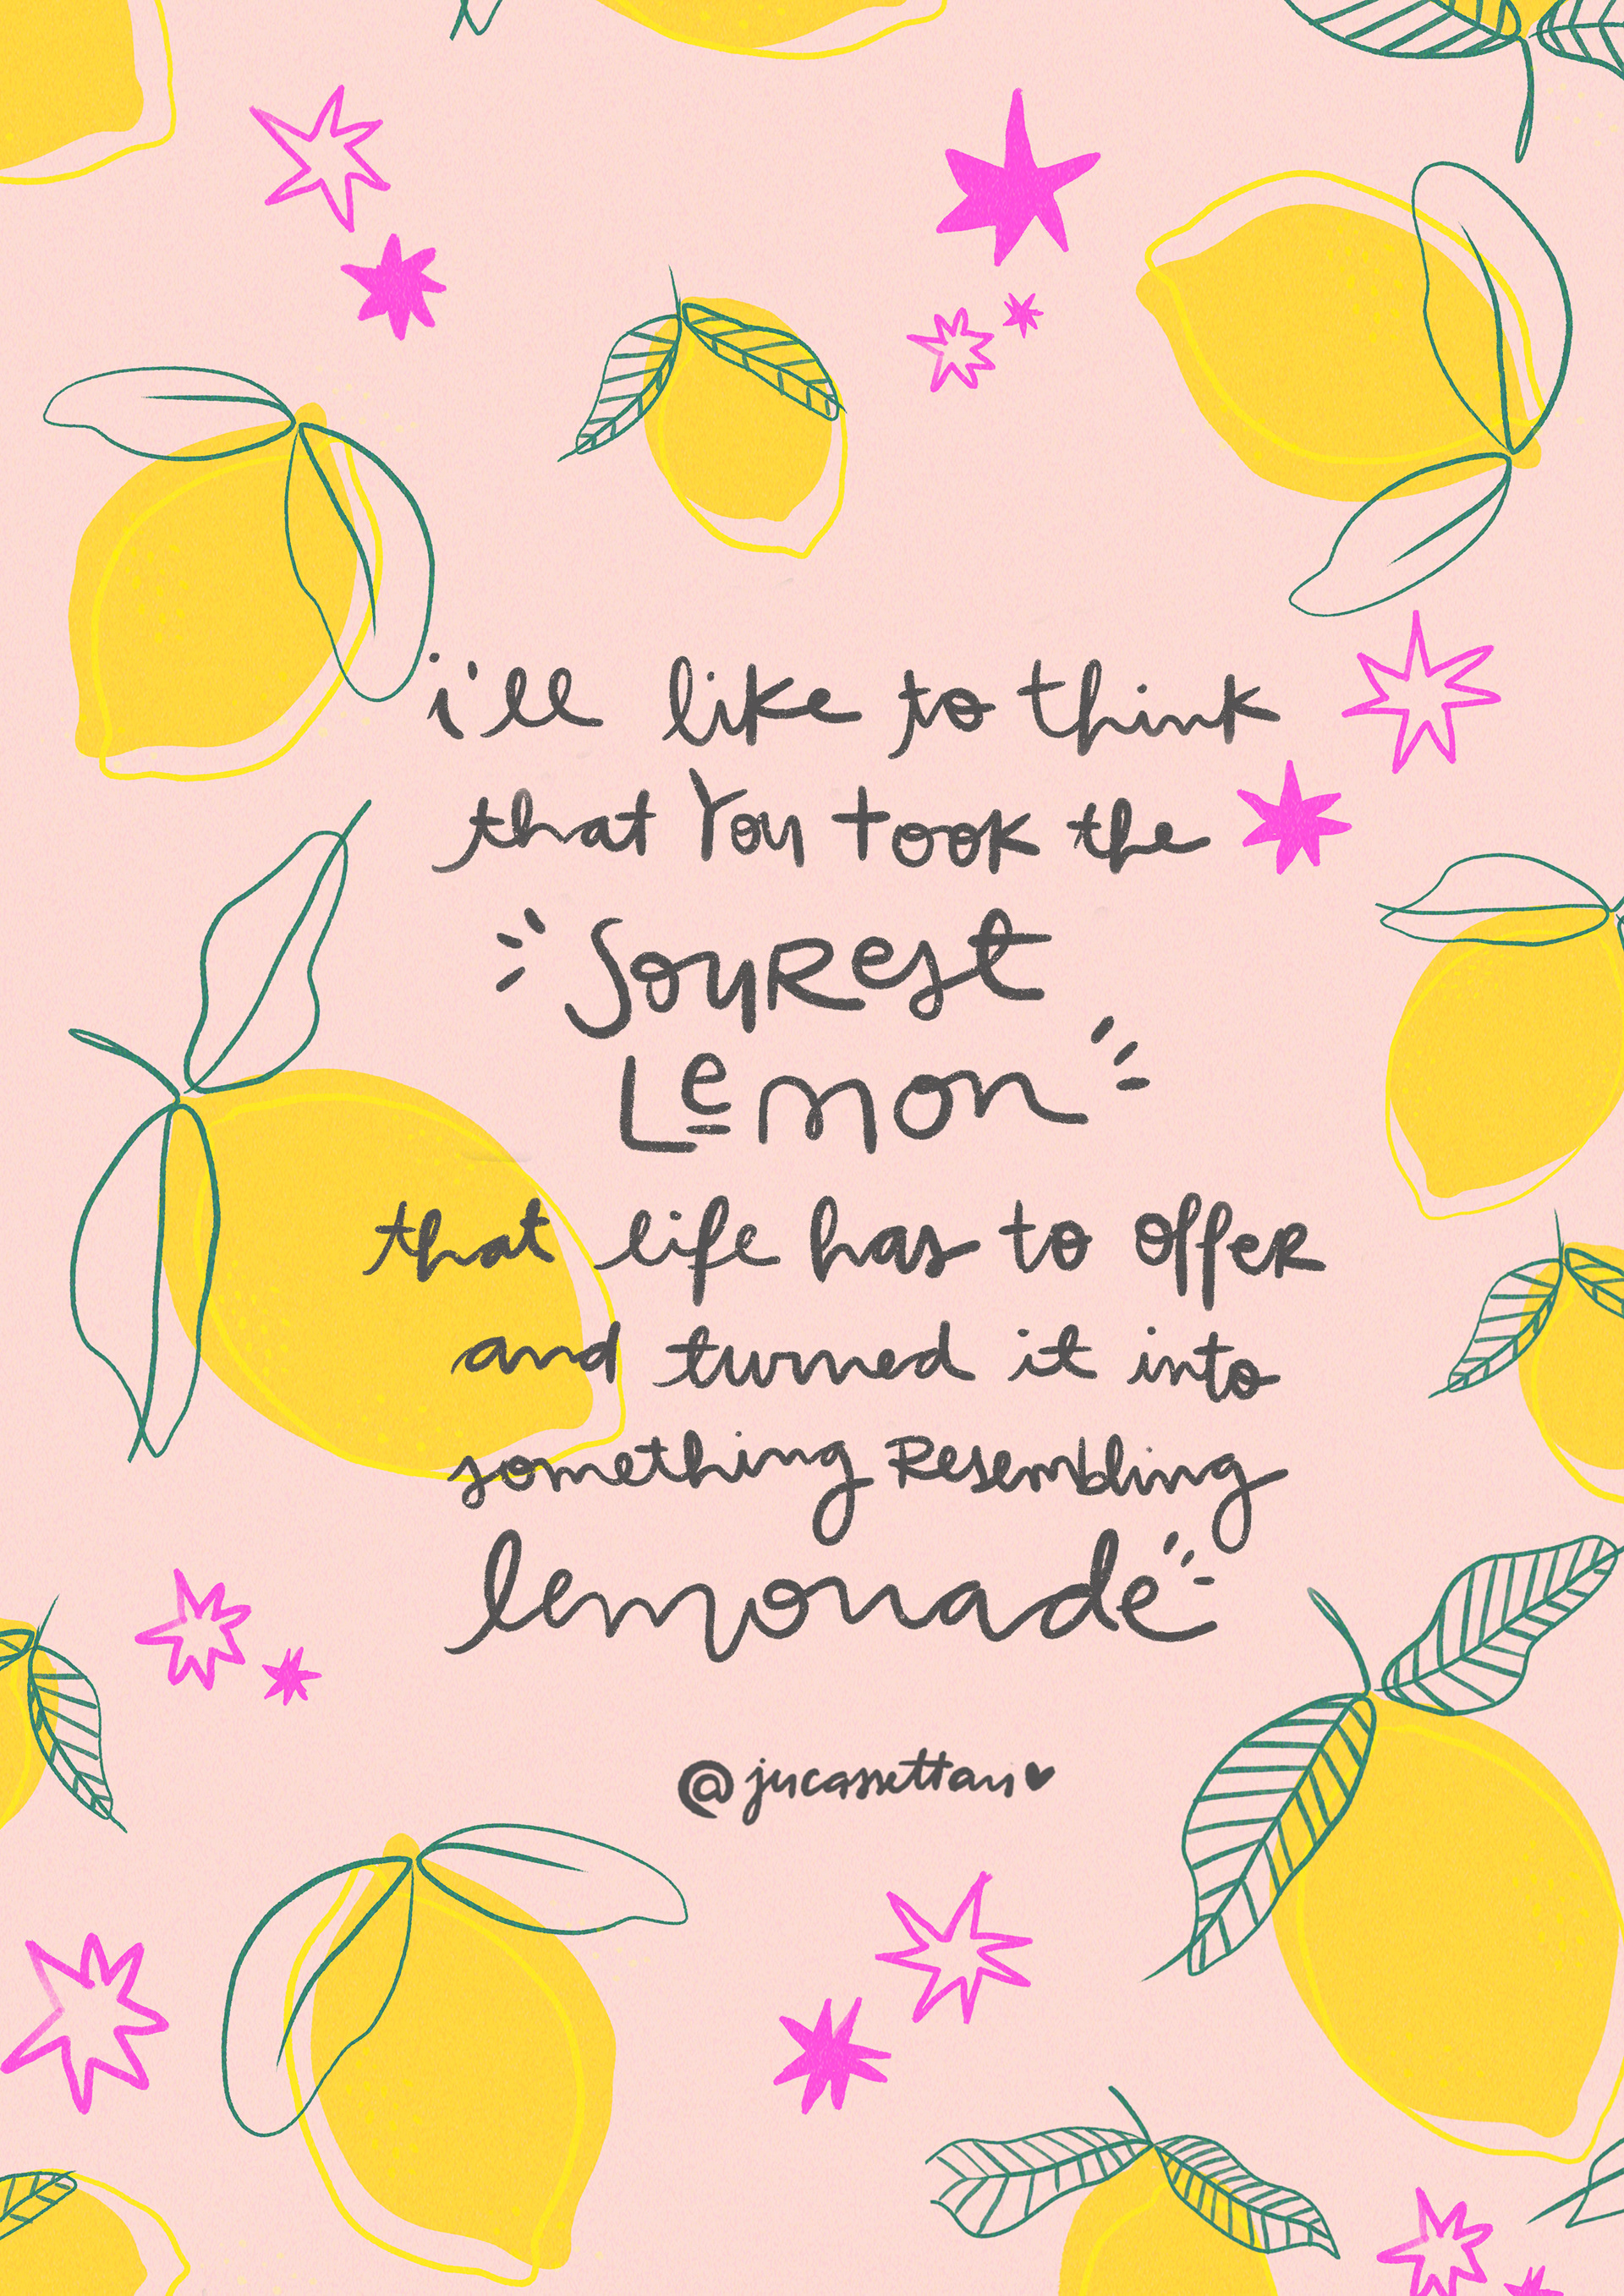 i'll like to think
that You took the
SouRest
Lemon
that life has to offer
and turned it into
something Resembling
lemonade
@jucassettari